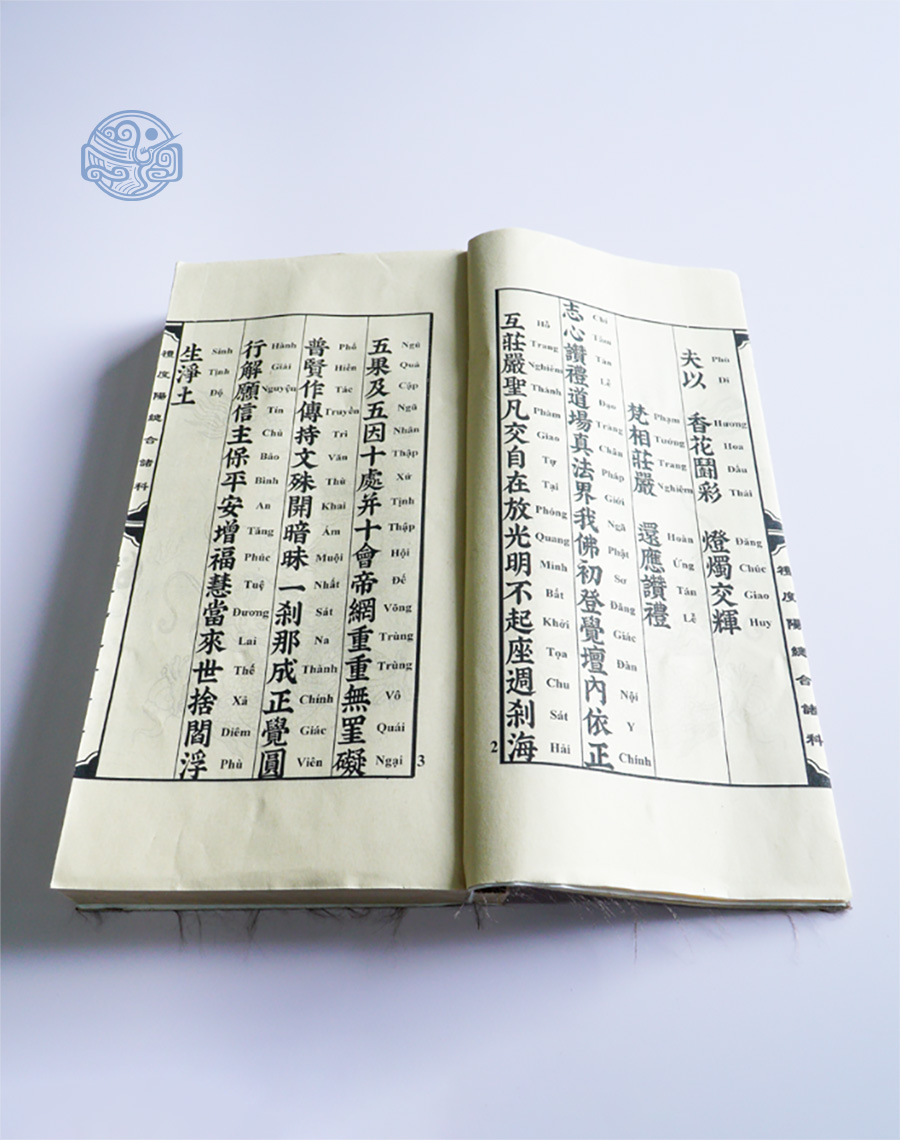 夫以 香花鬪彩 燈燭交輝
Phù Dĩ Hương Hoa Đấu Thái Đăng Chúc Giao Huy
梵相莊嚴 還應讚禮
Phạm Tướng Trang Nghiêm Hoàn Ứng Tán Lễ
志心讚禮道場真法界我佛初登覺壇內依正
Chí Tâm Tán Lễ Đạo Tràng Chân Pháp Giới Ngã Phật Sơ Đăng Giác Đàn Nội Y Chính
互莊嚴聖凡交自在放光明不起座週剎海
Hỗ Trang Nghiêm Thánh Phàm Giao Tự Tại Phóng Quang Minh Bất Khởi Tọa Chu Sát Hải
2
禮度陽總合諸科
五果及五因十處并十會帝網重重無罣礙
Ngũ Quả Cập Ngũ Nhân Thập Xứ Tịnh Thập Hội Đế Võng Trùng Trùng Vô Quái Ngại
普賢作傳持文殊開暗昧一剎那成正覺圓
Phổ Hiền Tác Truyền Trì Văn Thù Khai Ám Muội Nhất Sát Na Thành Chính Giác Viên
行解願信主保平安增福慧當來世捨閻浮
Hành Giải Nguyện Tín Chủ Bảo Bình An Tăng Phúc Tuệ Đương Lai Thế Xả Diêm Phù
生淨土
Sinh Tịnh Độ
3
禮度陽總合諸科